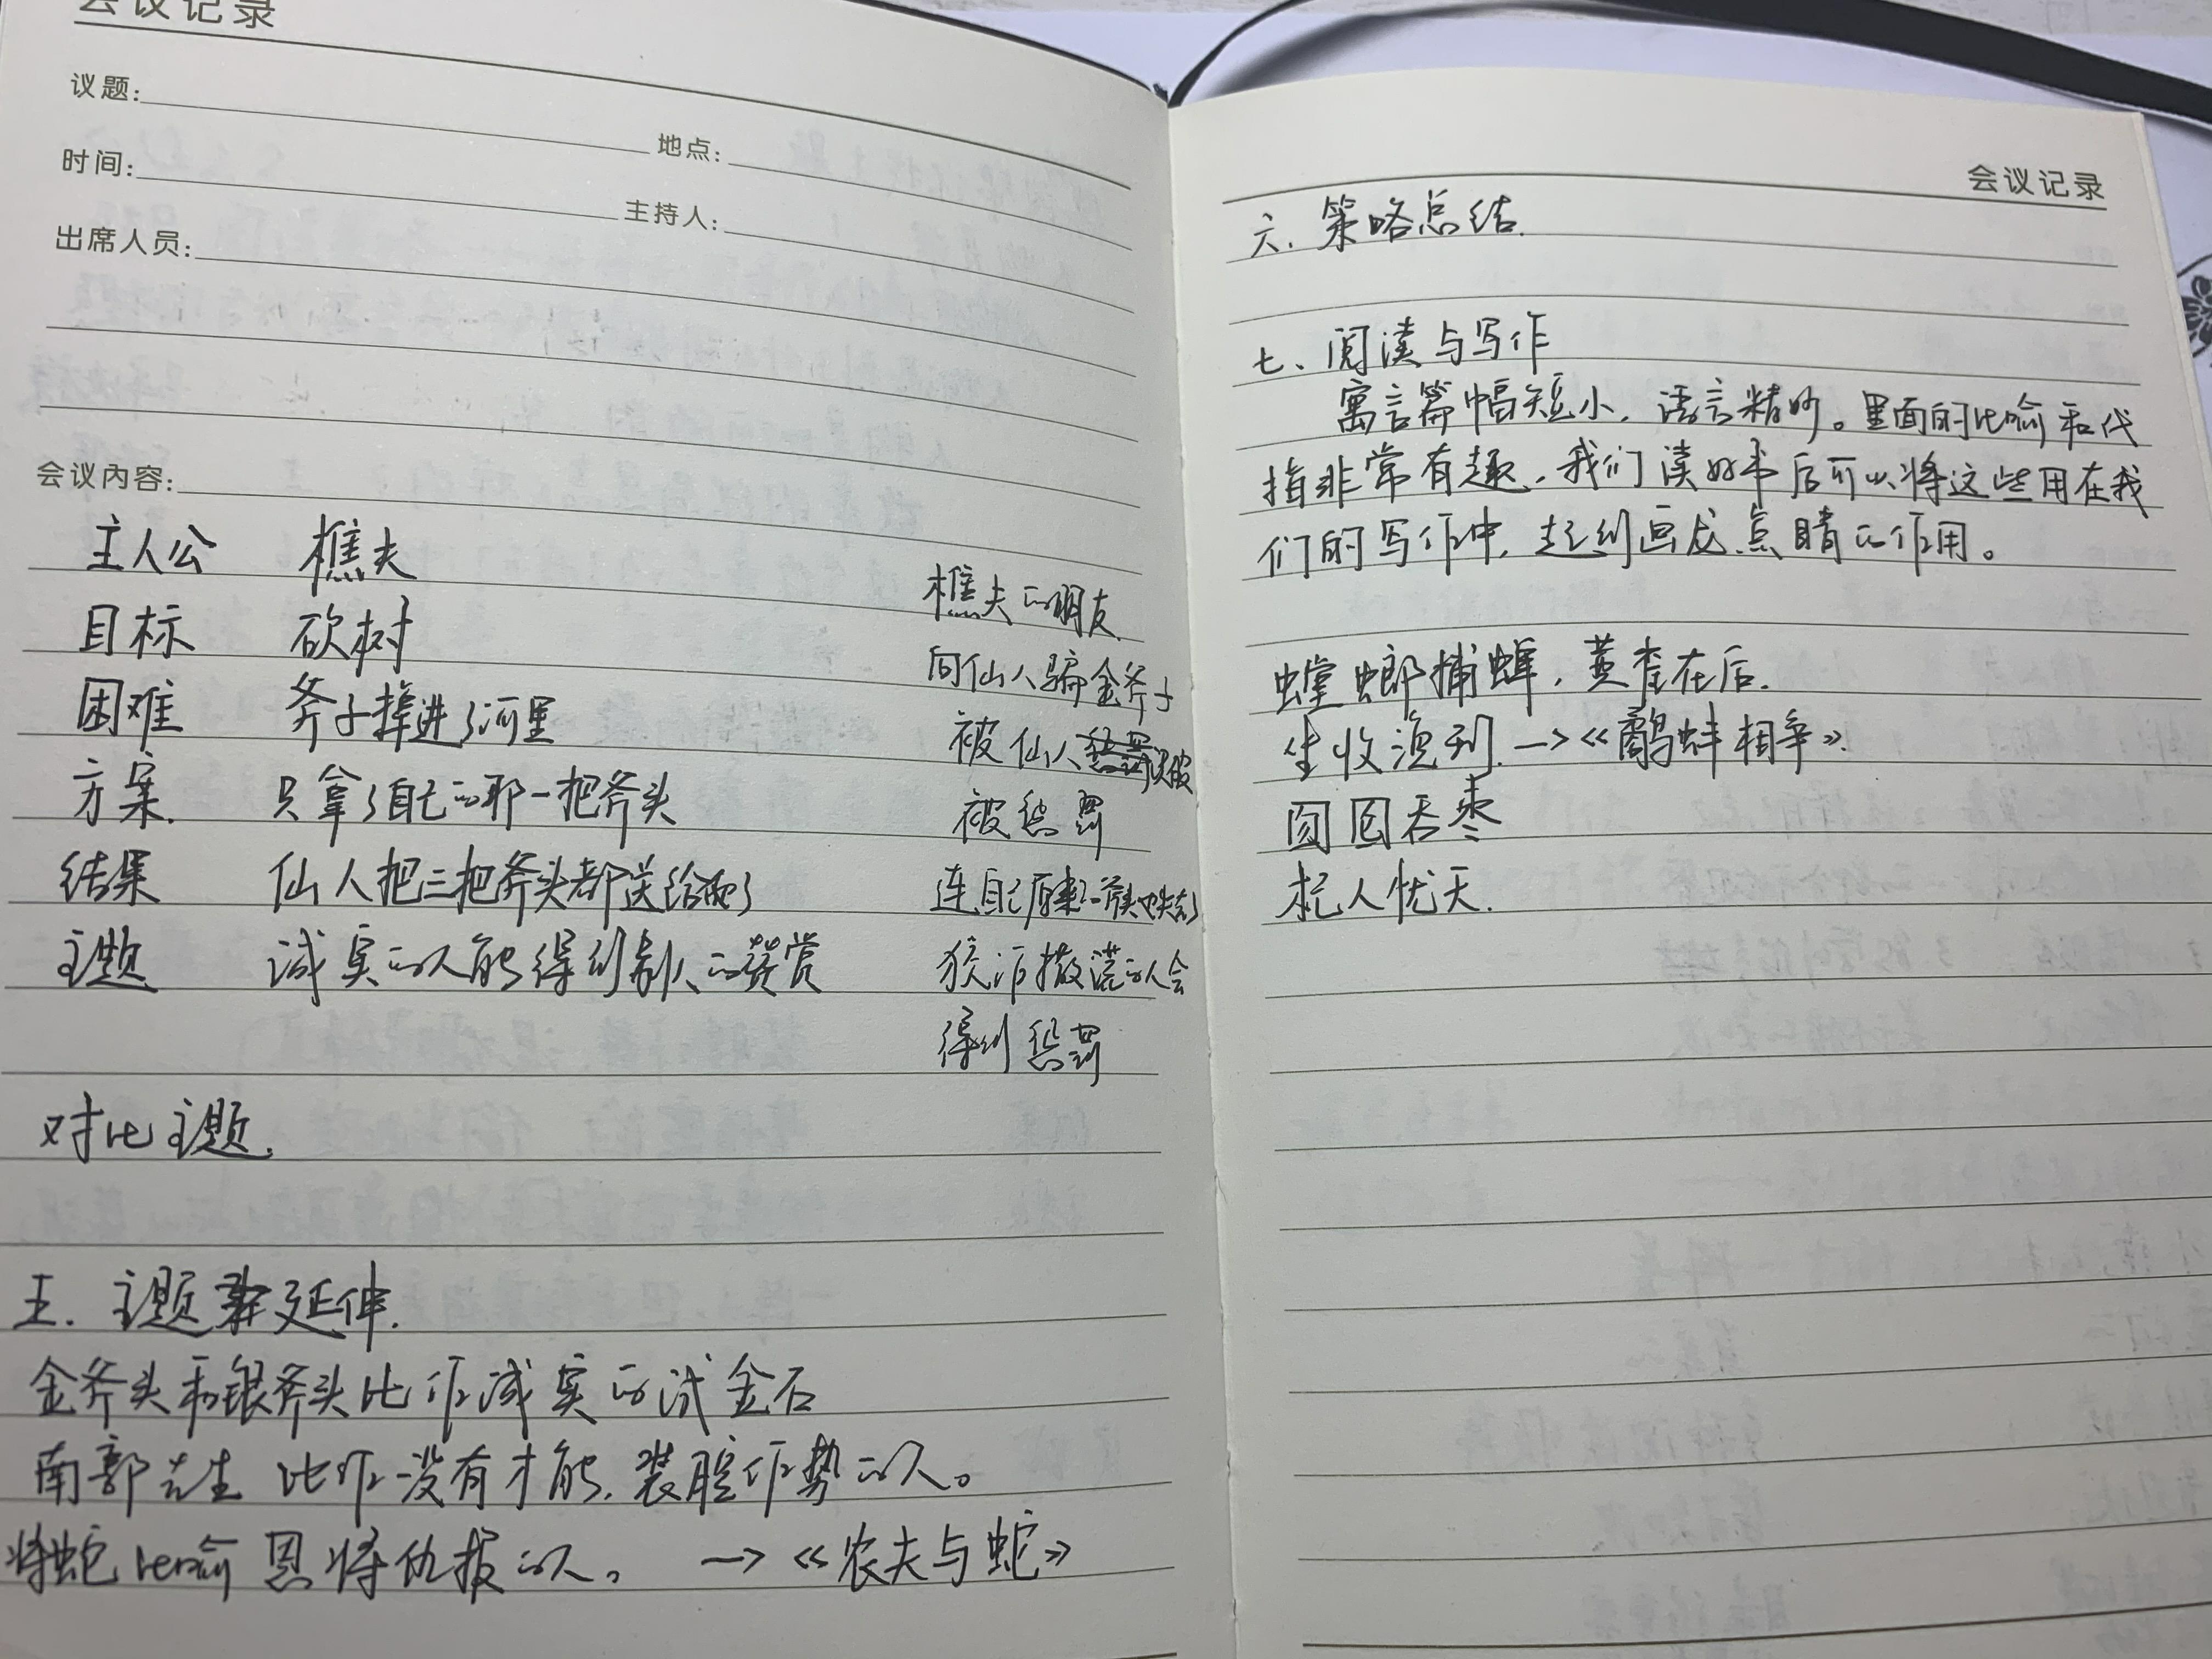 会议记录
议题:
地点:
时间:
主持人:
出席人员:
会议内容:
主人公 樵夫
目标 砍树
困难 斧子掉进了河里
方案. 只拿了自己的那一把斧头
结果 仙人把三把斧头都送给他了
主题 诚实的人能得到别人的赞赏
樵夫的朋友
向仙人骗金斧子
被仙人识破
被惩罚
连自己原来的斧头也失去了
狡诈撒谎的人会
得到惩罚
对比主题.
五. 主题延伸.
金斧头和银斧头比作诚实的试金石
南郭先生 比作没有才能、装腔作势的人。
将蛇比喻 恩将仇报的人。 —> 《农夫与蛇》
会议记录
六、策略总结.
七、阅读与写作
寓言篇幅短小,语言精妙。里面的比喻和代
指非常有趣,我们读好书后可以将这些用在我
们的写作中,起到画龙点睛的作用。
螳螂捕蝉,黄雀在后.
坐收渔利. —> 《鹬蚌相争》.
囫囵吞枣
杞人忧天.